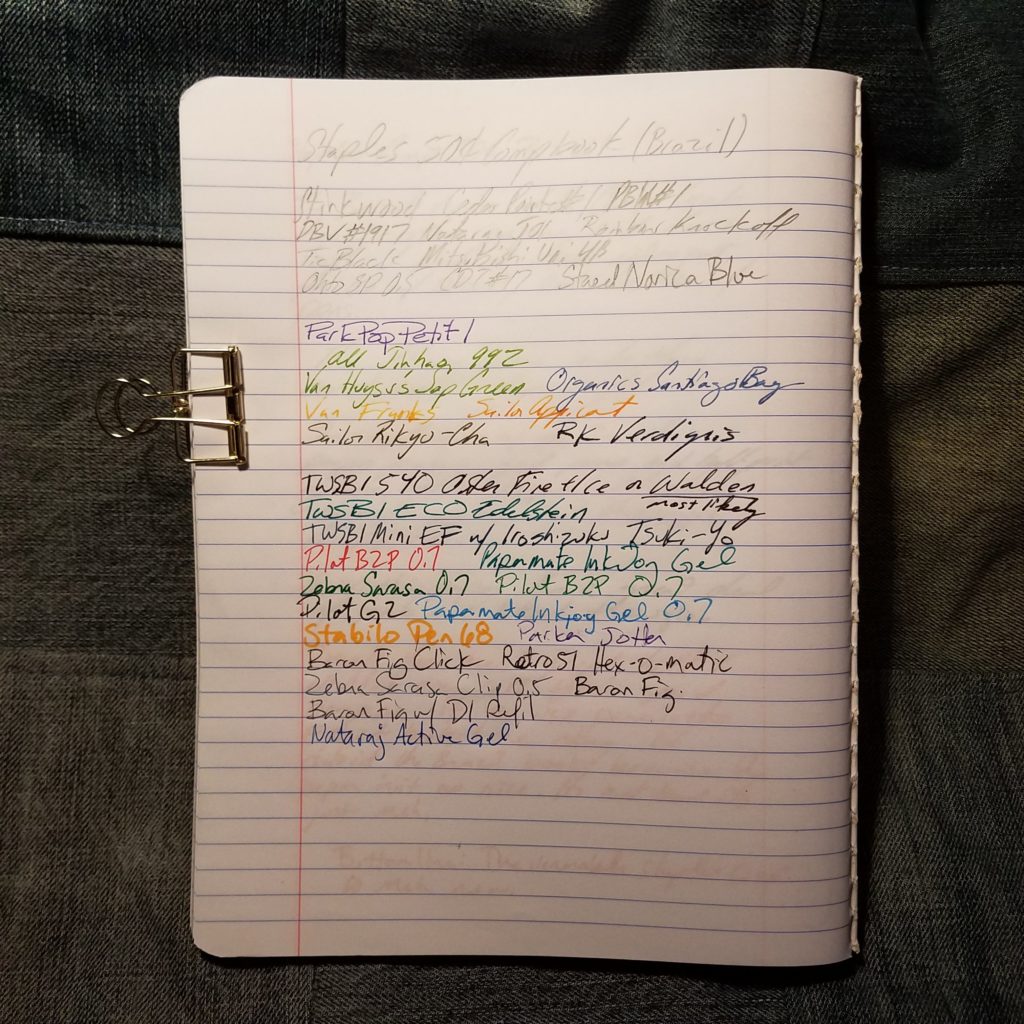 Staples 50¢ Compbook (Brazil)
Stinkwood Cedar Pointe #1 PBW #1
DBV #1917 Nataraj 701 Rainbow Knockoff
Tic Black Mitsubishi Uni 4B
Ohto SP 0.5 CDT #17 Staed Norica Blue
Park Pop Petit 1
all Jinhao 992
Van Huys's Jap Green Organics Santiago Bay
Van Sailor Appicat
Sailor Rikyo-Cha RK Verdigris
TWSBI 540 Oster Fire + Ice on Walden
TWSBI ECO Edelstein most likely
TWSBI Mini EF w/ Iroshizuku Tsuki-Yo
Pilot B2P 0.7 Papermate InkJoy Gel
Zebra Sarasa 0.7 Pilot B2P 0.7
Pilot G2 Papermate Inkjoy Gel 0.7
Stabilo Pen 68 Parker Jotter
Baron Fig Click Retro 51 Hex-o-matic
Zebra Sarasa Clip 0.5 Baron Fig.
Baron Fig w/ D1 Refil
Nataraj Active Gel